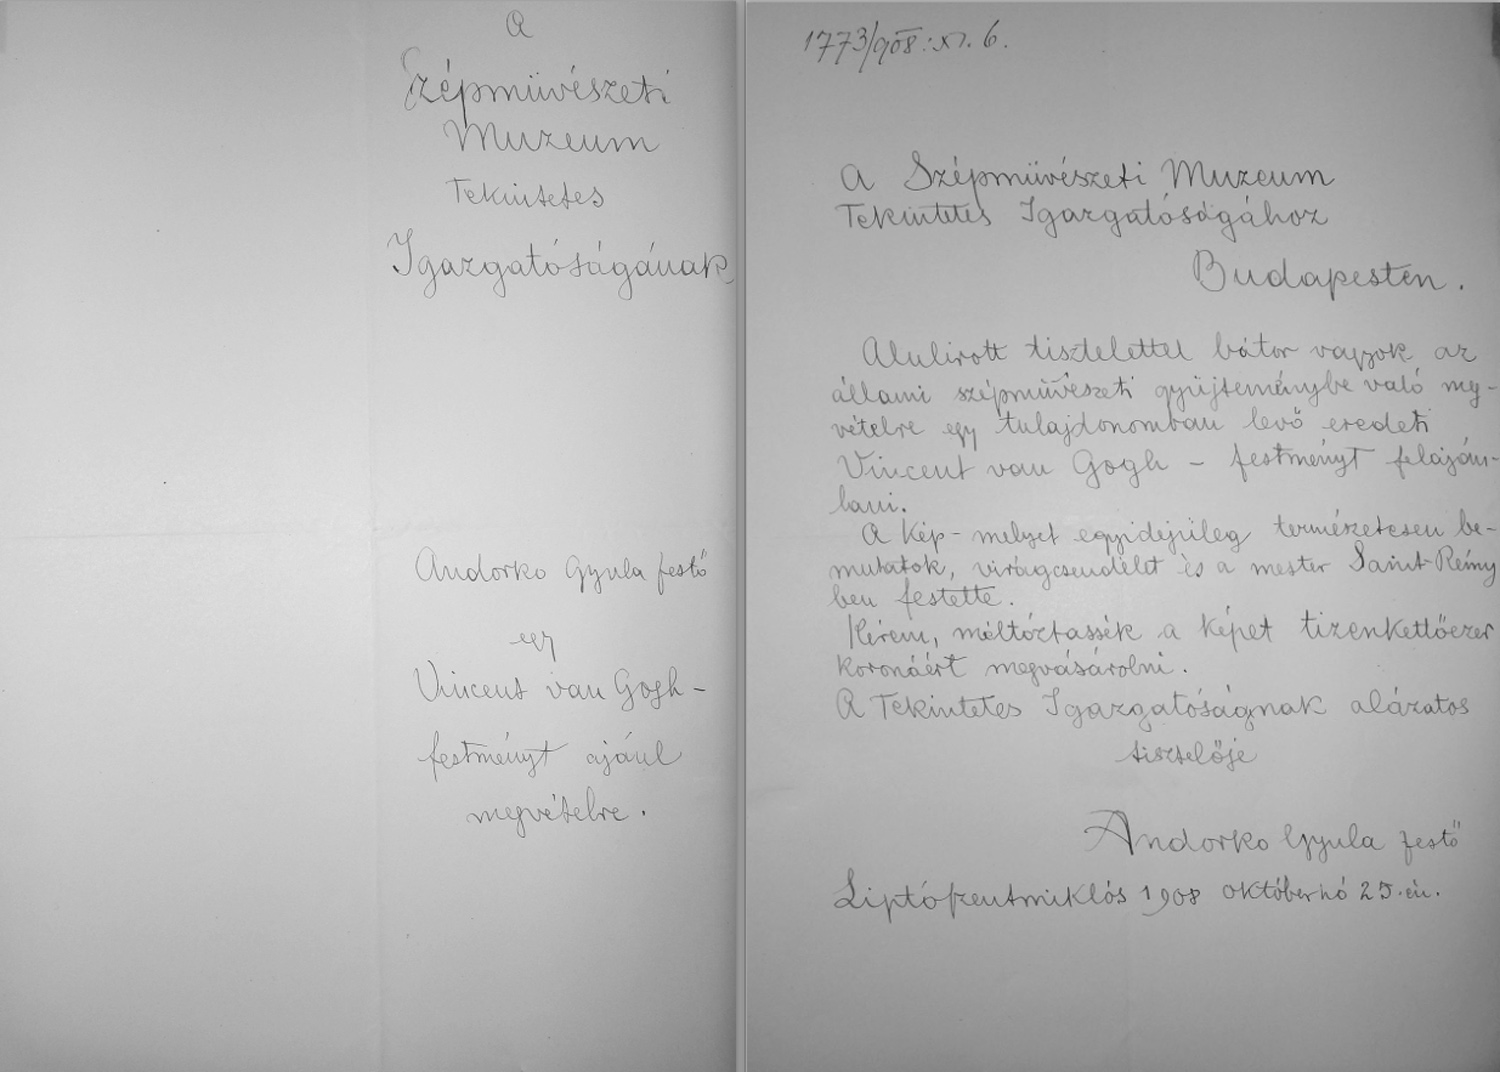 A
Szépmüvészeti
Muzeum
Tekintetes
Igazgatóságának
Andorko Gyula festő
egy
Vincent van Gogh-
festményt ajánl
megvételre.
1773/908: XI. 6.
A Szépmüvészeti Muzeum
Tekintetes Igazgatóságához
Budapesten.
Alulirott tisztelettel bátor vagyok az
állami szépművészeti gyüjteménybe való meg-
vételre egy tulajdonomban levő eredeti
Vincent van Gogh - festményt felaján-
lani.
A kép - melyet egyidejüleg természetesen be-
mutatok, virágcsendélet és a mester Saint-Rémy
ben festette.
Kérem, méltóztassék a képet tizenkettőezer
koronáért megvásárolni.
A Tekintetes Igazgatóságnak alázatos
tisztelője
Andorko Gyula festő
Liptószentmiklós 1908 októberhó 25.-én.